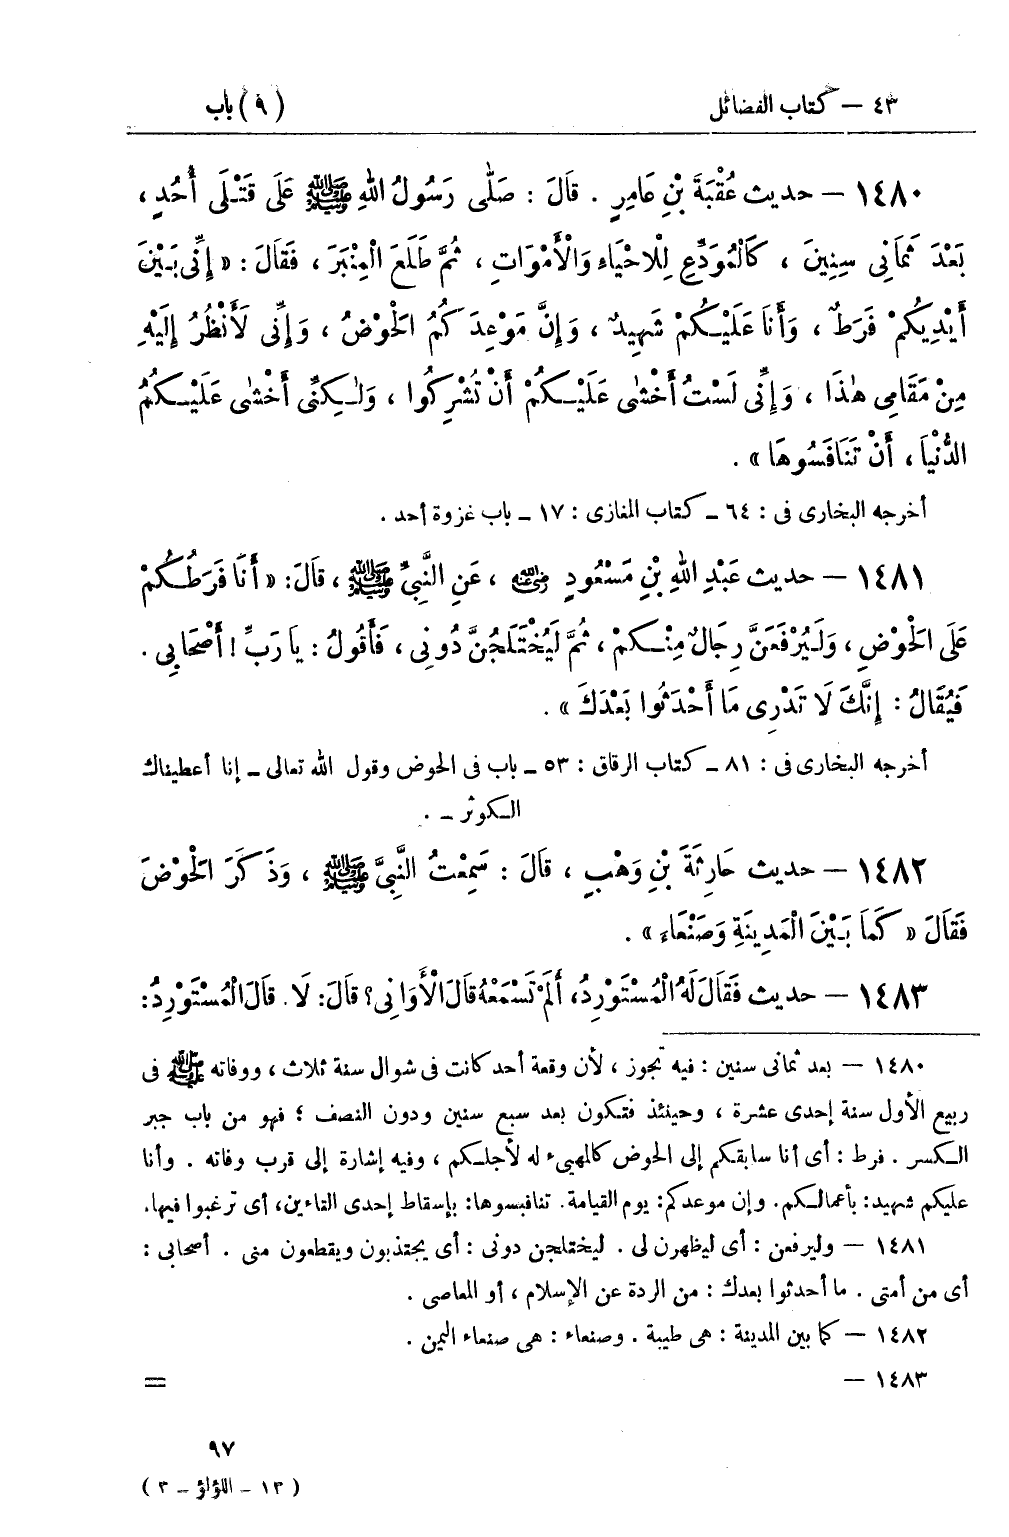 ٤٣ — كتاب الفضائل (٩) باب
١٤٨٠ — حديث عُقْبَةَ بْنِ عَامِرٍ . قَالَ : صَلَّى رَسُولُ اللهِ ﷺ عَلَى قَتْلَى أُحُدٍ ،
بَعْدَ ثَمَانِى سِنِينَ ، كَالْمُوَدِّعِ لِلْأَحْيَاءِ وَالْأَمْوَاتِ ، ثُمَّ طَلَعَ الْمِنْبَرَ ، فَقَالَ : « إِنِّى بَيْنَ
أَيْدِيكُمْ فَرَطٌ ، وَأَنَا عَلَيْكُمْ شَهِيدٌ ، وَإِنَّ مَوْعِدَكُمُ الْحَوْضُ ، وَإِنِّى لَأَنْظُرُ إِلَيْهِ
مِنْ مَقَامِى هٰذَا ، وَإِنِّى لَسْتُ أَخْشٰى عَلَيْكُمْ أَنْ تُشْرِكُوا ، وَلٰكِنِّى أَخْشٰى عَلَيْكُمُ
الدُّنْيَا ، أَنْ تَنَافَسُوهَا » .
أخرجه البخارى فى : ٦٤ ـ كتاب المغازى : ١٧ ـ باب غزوة أحد .
١٤٨١ — حديث عَبْدِ اللهِ بْنِ مَسْعُودٍ رضي الله عنه ، عَنِ النَّبِيِّ ﷺ ، قَالَ : « أَنَا فَرَطُكُمْ
عَلَى الْحَوْضِ ، وَلَيُرْفَعَنَّ رِجَالٌ مِنْكُمْ ، ثُمَّ لَيُخْتَلَجُنَّ دُونِى ، فَأَقُولُ : يا رَبِّ ! أَصْحَابِى .
فَيُقَالُ : إِنَّكَ لَا تَدْرِى مَا أَحْدَثُوا بَعْدَكَ » .
أخرجه البخارى فى : ٨١ ـ كتاب الرقاق : ٥٣ ـ باب فى الحوض وقول الله تعالى ـ إنا أعطيناك
الكوثر ـ .
١٤٨٢ — حديث حَارِثَةَ بْنِ وَهْبٍ ، قَالَ : سَمِعْتُ النَّبِيَّ ﷺ ، وَذَكَرَ الْحَوْضَ
فَقَالَ « كَمَا بَيْنَ الْمَدِينَةِ وَصَنْعَاءَ » .
١٤٨٣ — حديث فَقَالَ لَهُ الْمُسْتَوْرِدُ، أَلَمْ تَسْمَعْهُ قَالَ الْأَوَانِى؟ قَالَ: لَا. قَالَ الْمُسْتَوْرِدُ:
١٤٨٠ — بعد ثمانى سنين : فيه تجوز ، لأن وقعة أحد كانت فى شوال سنة ثلاث ، ووفاته ﷺ فى
ربيع الأول سنة إحدى عشرة ، وحينئذ فتكون بعد سبع سنين ودون النصف ؛ فهو من باب جبر
الكسر . فرط : أى أنا سابقكم إلى الحوض كالمهيىء له لأجلكم ، وفيه إشارة إلى قرب وفاته . وأنا
عليكم شهيد: بأعمالكم. وإن موعدكم: يوم القيامة. تنافسوها: بإسقاط إحدى التاءين، أى ترغبوا فيها.
١٤٨١ — وليرفعن : أى ليظهرن لى . ليختلجن دونى : أى يجتذبون ويقطعون منى . أصحابى :
أى من أمتى . ما أحدثوا بعدك : من الردة عن الإسلام ، أو المعاصى .
١٤٨٢ — كما بين المدينة : هى طيبة . وصنعاء : هى صنعاء اليمن .
١٤٨٣ — =
٩٧
( ١٣ - اللؤلؤ - ٣ )